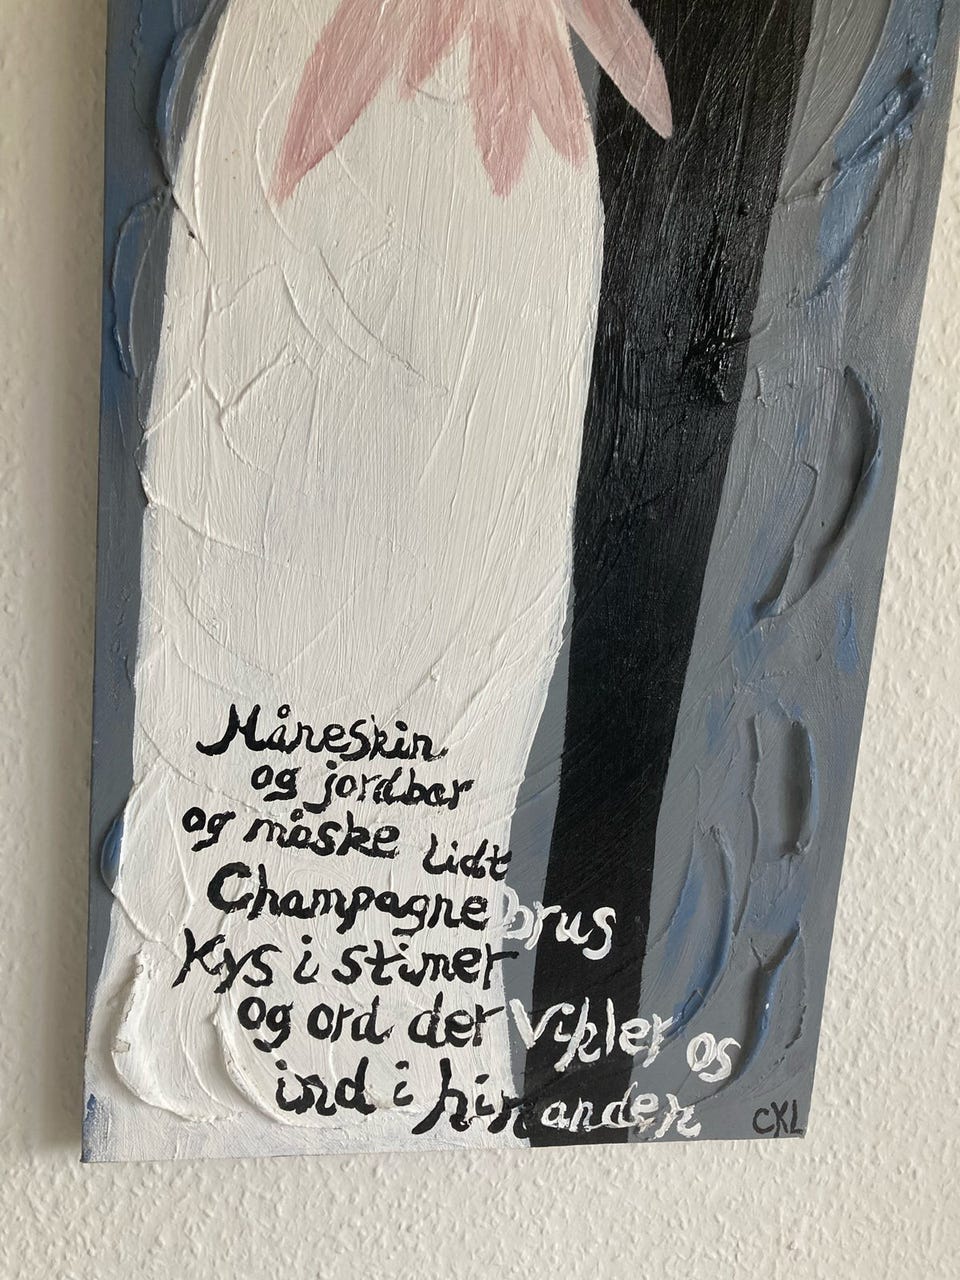 Måneskin
og jordbær
og måske lidt
Champagnebrus
Kys i stimer
og ord der Vikler os
ind i hinanden
CKL